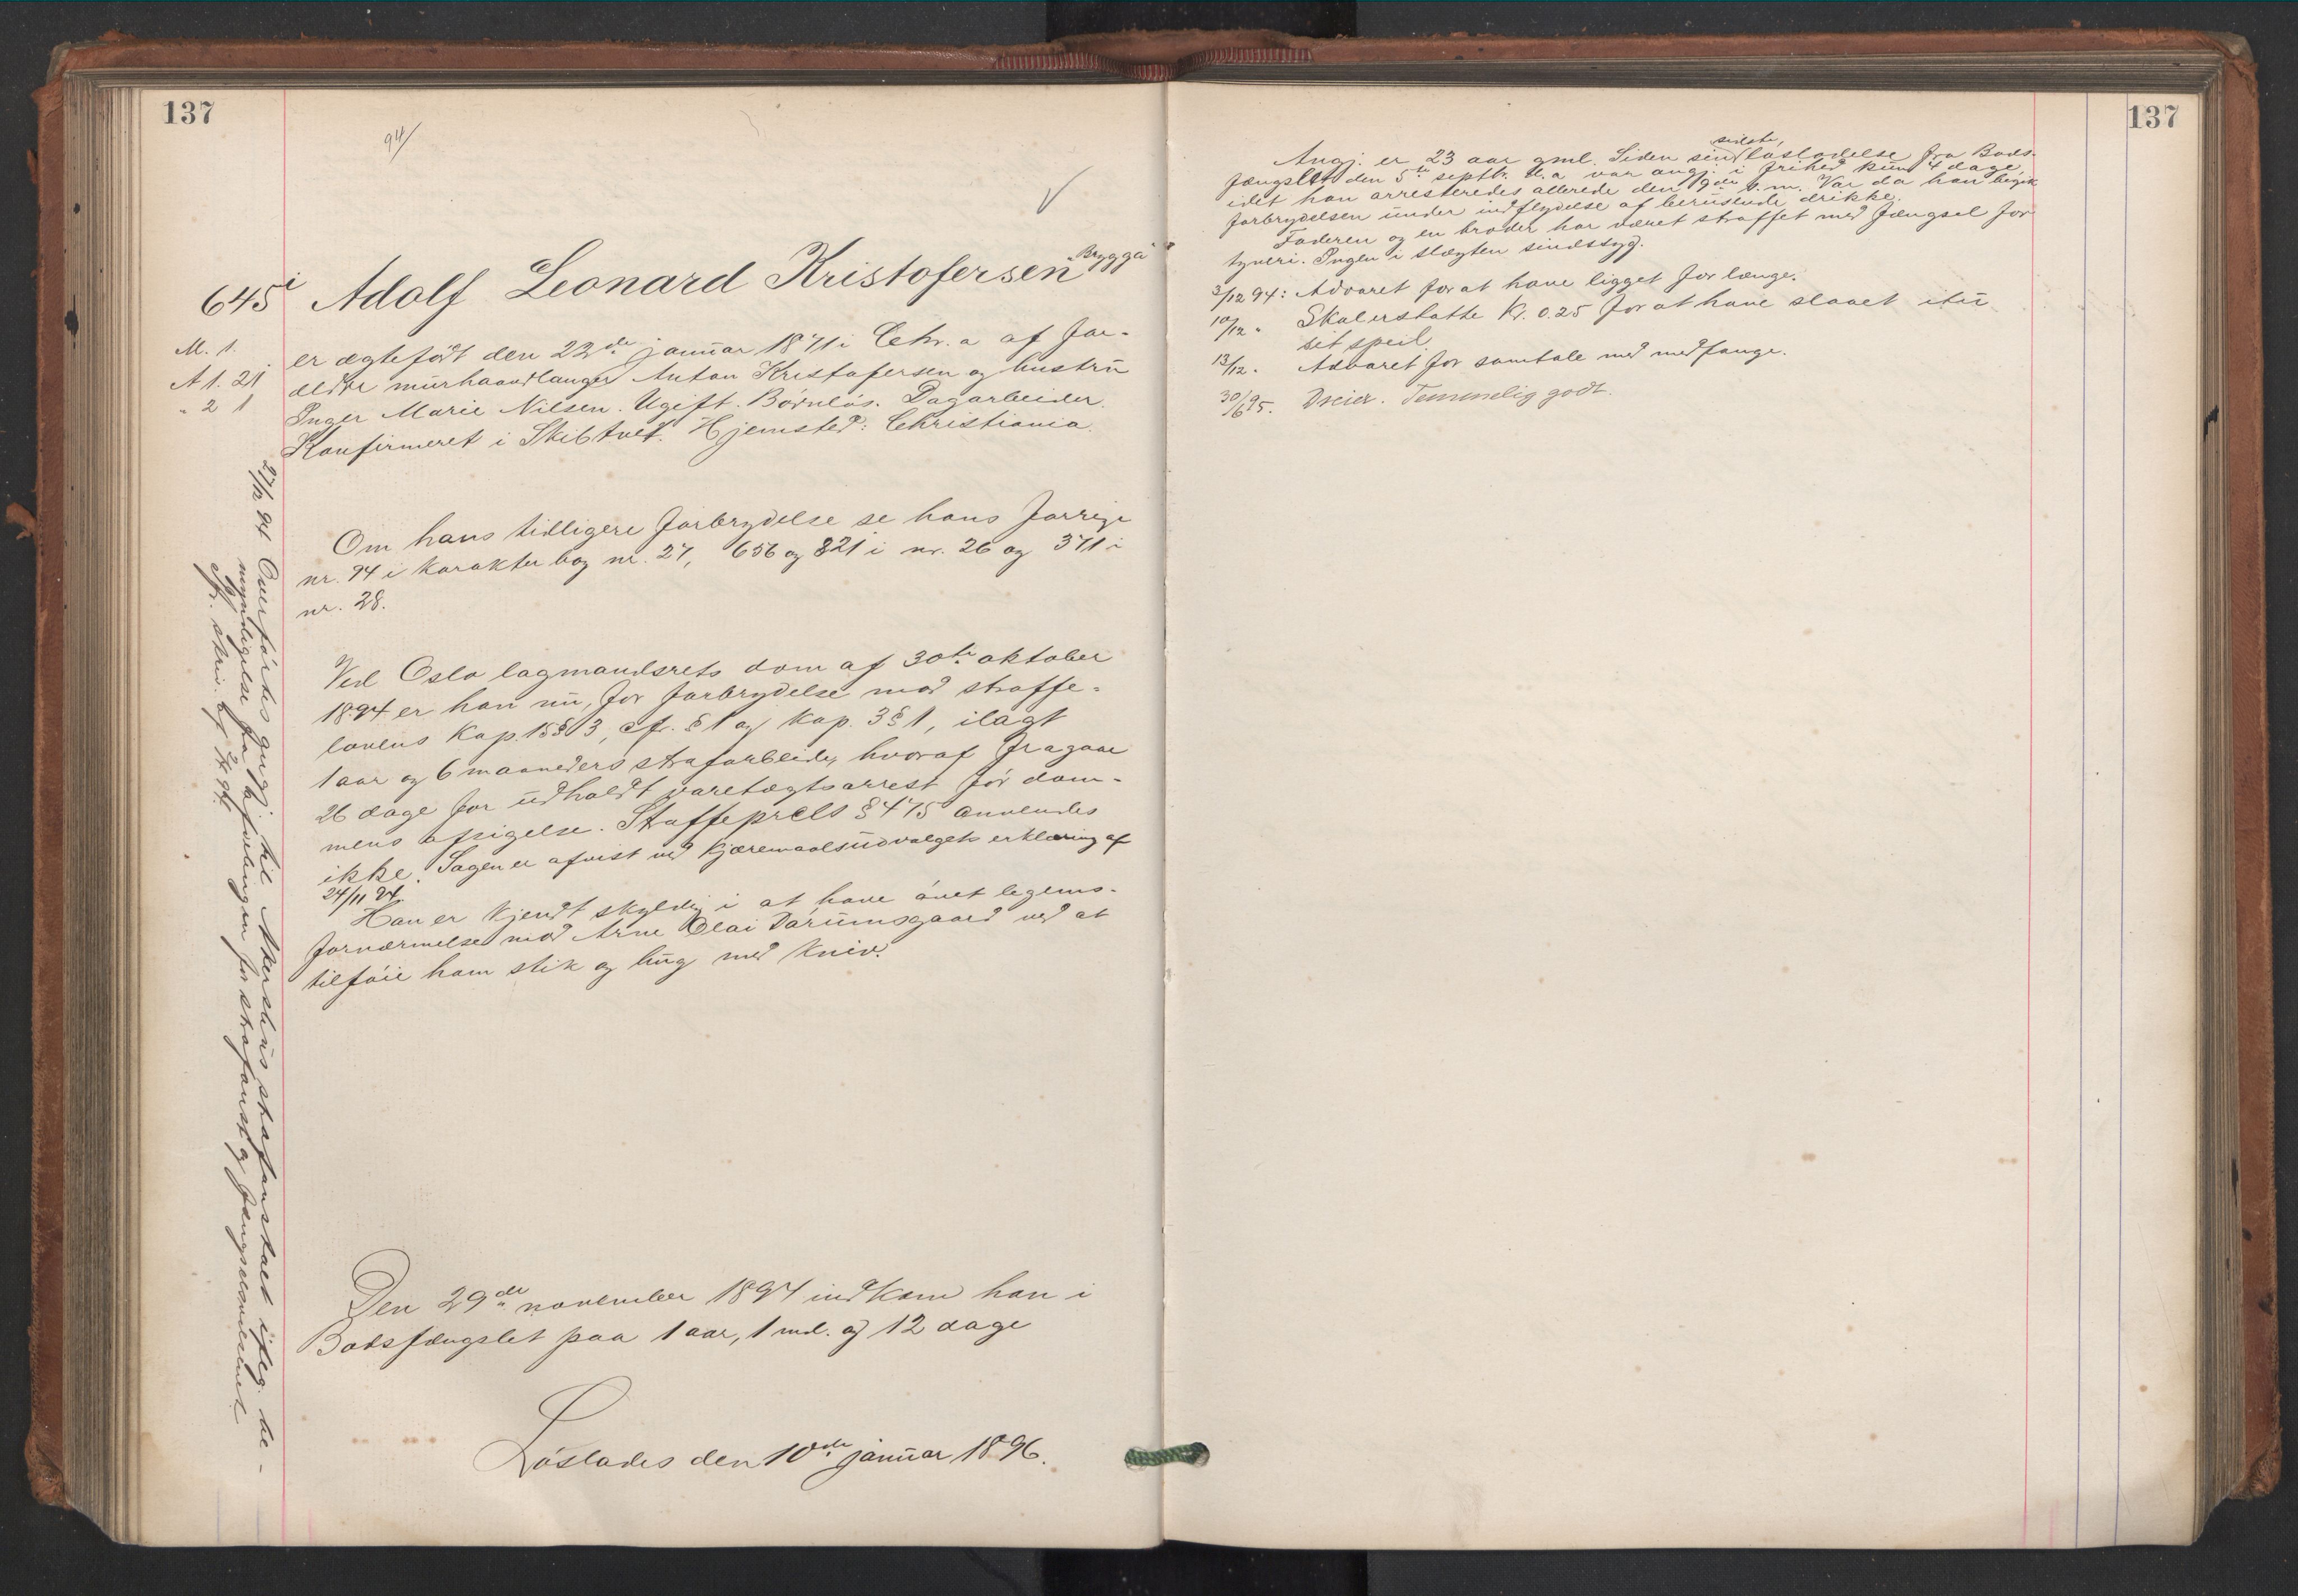 137
94/
645 i Adolf Leonard Kristofersen "Brygga"
M. 1.
A 1. 21
" 2 1
er ægtefødt den 23de januar 1871 i Chr.a af for-
ældre murhaandlanger Anton Kristofersen og hustru
Inger Marie Nilsen. Ugift. Børnløs. Dagarbeider.
Konfirmeret i Skibtvet. Hjemsted: Christiania.
Om hans tidligere forbrydelse se hans forrige
nr. 94 i karakterbog nr. 27, 656 og 821 i nr. 26 og 371 i
nr. 28.
Ved Oslo lagmandsrets dom af 30te oktober
1894 er han nu, for forbrydelse mod straffe-
lovens Kap. 15 § 3, cfr. § 1 og Kap. 3 § 1, ilagt
1 aar og 6 maaneders strafarbeide, hvoraf fragaar
26 dage for udholdt varetægtsarrest før dom-
mens afsigelse. Straffeprcls § 475 anvendes
ikke. Sagen er afvist ved Kjæremaalsudvalgets erklæring af
24/11 94.
Han er kjendt skyldig i at have øvet legems-
fornærmelse mod Arne Olai Darumsgaard ved at
tilføie ham stik og hug med Kniv.
Den 29de november 1894 indkom han i
Bodsfængslet paa 1 aar, 1 md. og 12 dage
Løslades den 10de januar 1896.
27/12 94 Overførtes angj. til Akershus strafanstalt ifølg. be-
myndigelse fra afdelingen for strafanst. og fængselsvæsenet
Jfr. skriv. af
137
Angj. er 23 aar gml. Siden sin sidste, løsladelse fra Bods-
fængslet den 5te septbr. d.a. var angj. i frihed kun 4 dage,
idet han arresteredes allerede den 9de s.m. Var da han begik
forbrydelsen under indflydelse af berusende drikke.
Faderen og en broder har været straffet med fængsel for
tyveri. Ingen i slægten sindssyg.
3/12 94: Advaret for at have ligget for længe.
10/12 " Skal erstatte Kr. 0.25 for at have slaaet itu
sit speil.
13/12 " Advaret for samtale med medfange.
30/6 95. Dreier. Temmelig godt.